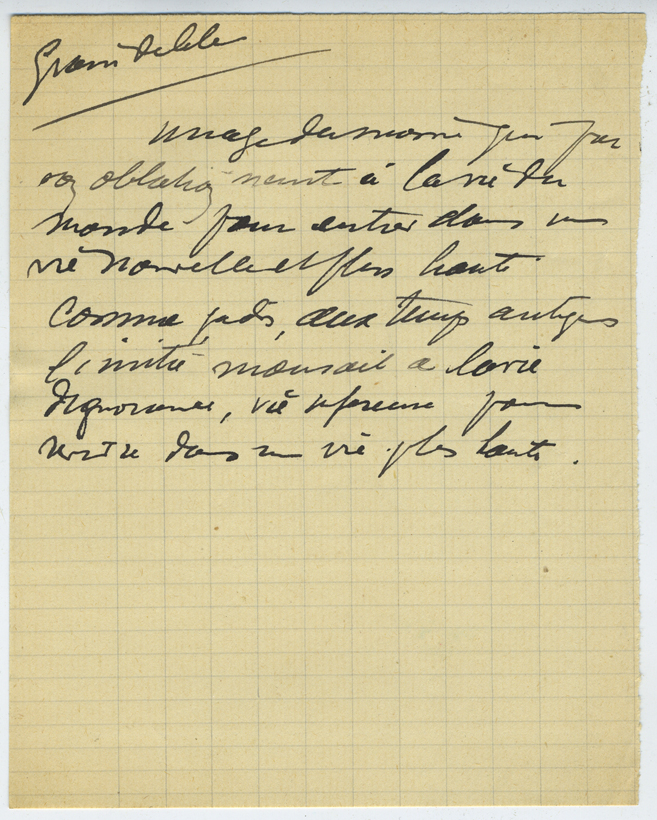 image du moine qui par
vos oblatio meurt à la vie du
monde pour entrer dans une
vie nouvelle et plus haute
comme jadis, aux temps antiques
l'initié mourait a la vie
d'ignorance, vie inférieure pour
dans une vie plus haute.